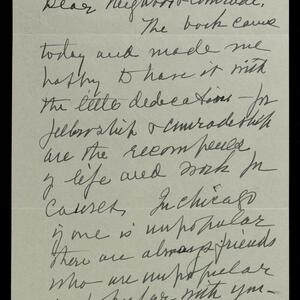 Dear Neighbor & Comrade,
The book came
today and made me
happy to have it with
the little dedication – for
fellowship & comradeship
are the recompense
of life and work for
causes. In Chicago
if one is unpopular
there are always friends
who are unpopular
with you –